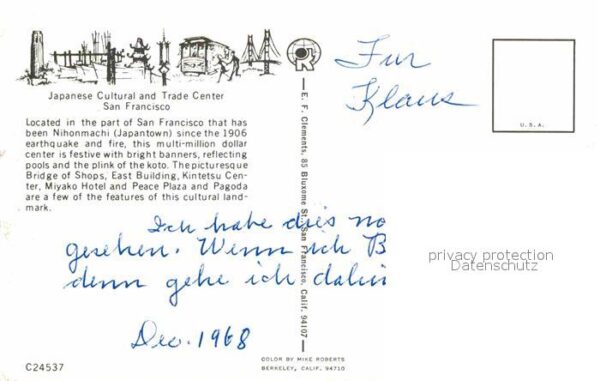 Japanese Cultural and Trade Center
San Francisco
Located in the part of San Francisco that has
been Nihonmachi (Japantown) since the 1906
earthquake and fire, this multi-million dollar
center is festive with bright banners, reflecting
pools and the plink of the koto. The picturesque
Bridge of Shops, East Building, Kintetsu Cen-
ter, Miyako Hotel and Peace Plaza and Pagoda
are a few of the features of this cultural land-
mark.
E. F. Clements, 85 Bluxome St., San Francisco, Calif. 94107
Fur
Klaus
U.S.A.
Ich habe dies no
gesehen. Wenn ich B
denn gehe ich dahin
Dec. 1968
privacy protection
Datenschutz
C24537
COLOR BY MIKE ROBERTS
BERKELEY, CALIF. 94710